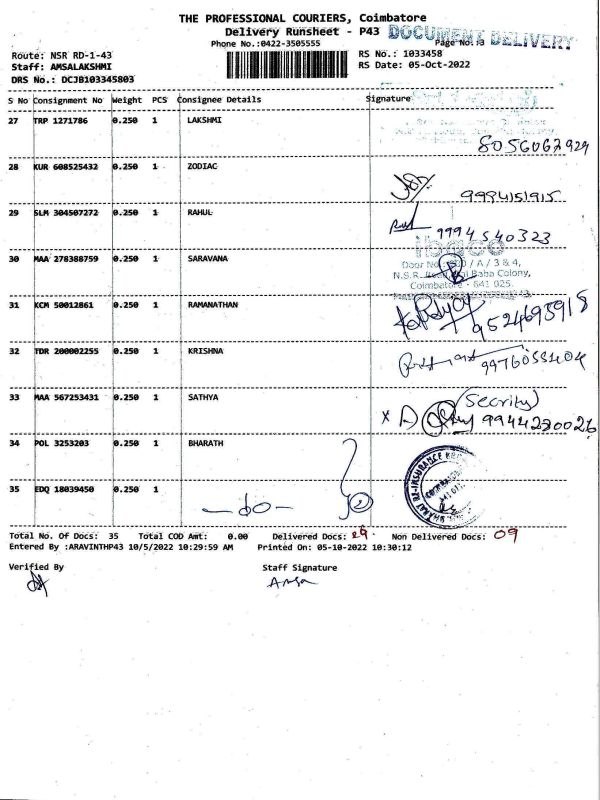 THE PROFESSIONAL COURIERS, Coimbatore
Delivery Runsheet - P43
DOCUMENT DELIVERY
Phone No.:0422-3505555
Page No.:3
Route: NSR RD-1-43
RS No.: 1033458
Staff: AMSALAKSHMI
RS Date: 05-Oct-2022
DRS No.: DCJB103345803
S No Consignment No Weight PCS Consignee Details Signature
27 TRP 1271786 0.250 1 LAKSHMI
8056067924
28 KUR 608525432 0.250 1 ZODIAC
9994151915
29 SLM 304507272 0.250 1 RAHUL
9994540323
ibaco
30 MAA 278388759 0.250 1 SARAVANA
Door No. / A / 3 & 4,
N.S.R. Road, Sai Baba Colony,
Coimbatore - 641 025.
31 KCM 50012861 0.250 1 RAMANATHAN
9524695918
32 TDR 200002255 0.250 1 KRISHNA
33 MAA 567253431 0.250 1 SATHYA
(Secrity)
x 9944230026
34 POL 3253203 0.250 1 BHARATH
35 EDQ 18039450 0.250 1
—do—
Total No. Of Docs: 35 Total COD Amt: 0.00 Delivered Docs: Non Delivered Docs: 09
Entered By :ARAVINTHP43 10/5/2022 10:29:59 AM Printed On: 05-10-2022 10:30:12
Verified By Staff Signature
Amsa